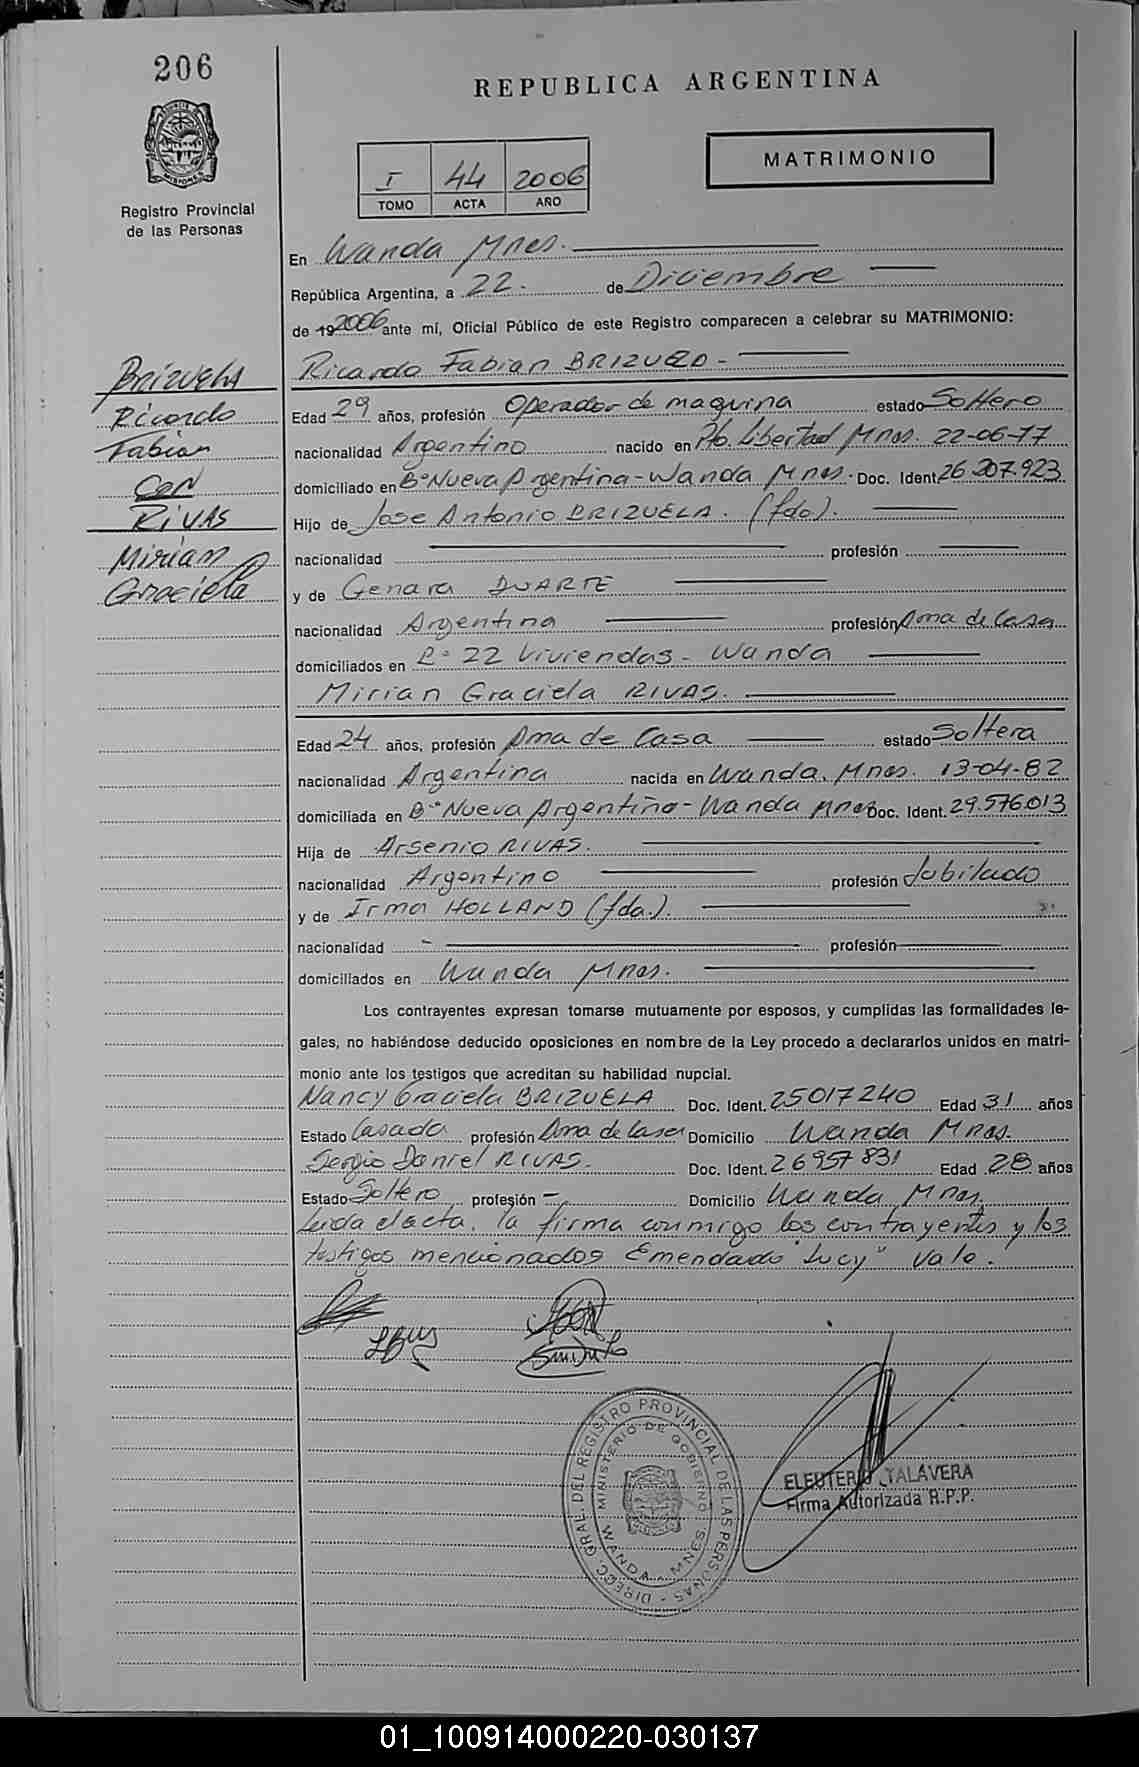 206
REPUBLICA ARGENTINA
MATRIMONIO
I 44 2006
TOMO ACTA AÑO
Registro Provincial
de las Personas
En Wanda Mnes.
República Argentina, a 22. de Diciembre
de 19 2006 ante mí, Oficial Público de este Registro comparecen a celebrar su MATRIMONIO:
Ricardo Fabian BRIZUELA
Brizuela
Ricardo
Fabian
con
RIVAS
Mirian
Graciela
Edad 29 años, profesión Operador de maquina estado Soltero
nacionalidad Argentino nacido en Pto. Libertad Mnes. 22-06-77
domiciliado en B° Nueva Argentina - Wanda Mnes. Doc. Ident 26.207.923
Hijo de Jose Antonio BRIZUELA. (fdo).
nacionalidad profesión
y de Genara DUARTE
nacionalidad Argentina profesión Ama de Casa
domiciliados en B° 22 Viviendas - Wanda
Mirian Graciela RIVAS.
Edad 24 años, profesión Ama de Casa estado Soltera
nacionalidad Argentina nacida en Wanda. Mnes. 13-04-82
domiciliada en B° Nueva Argentina - Wanda Mnes Doc. Ident. 29.576.013
Hija de Arsenio RIVAS.
nacionalidad Argentino profesión Jubilado
y de Irma HOLLAND (fda.).
nacionalidad profesión
domiciliados en Wanda Mnes.
Los contrayentes expresan tomarse mutuamente por esposos, y cumplidas las formalidades le-
gales, no habiéndose deducido oposiciones en nombre de la Ley procedo a declararlos unidos en matri-
monio ante los testigos que acreditan su habilidad nupcial.
Nancy Graciela BRIZUELA Doc. Ident. 25017240 Edad 31 años
Estado Casada profesión Ama de Casa Domicilio Wanda Mnes.
Sergio Daniel RIVAS. Doc. Ident. 26957831 Edad 28 años
Estado Soltero profesión - Domicilio Wanda Mnes.
Leida el acta, la firma conmigo los contrayentes y los
testigos mencionados Emendado "Lucy" Vale.
DIREC. GRAL. DEL REGISTRO PROVINCIAL DE LAS PERSONAS
MINISTERIO DE GOBIERNO
WANDA - MNES.
ELEUTERIO TALAVERA
Firma Autorizada R.P.P.
01_100914000220-030137